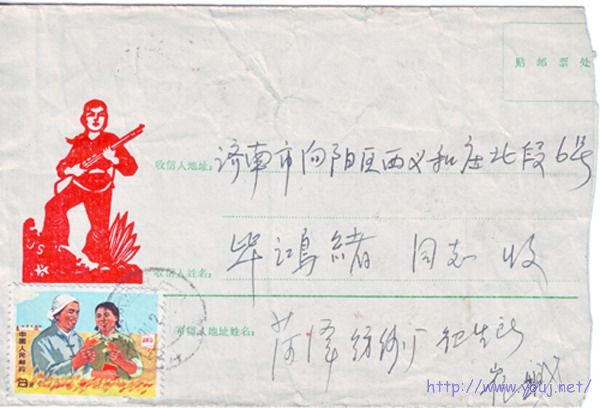 贴邮票处
收信人地址: 济南市向阳区西义和庄北段6号
收信人姓名: 毕鸿绪 同志 收
寄信人地址姓名: 菏泽纺纱厂卫生所
中国人民邮政
8分
http://www.youj.net/